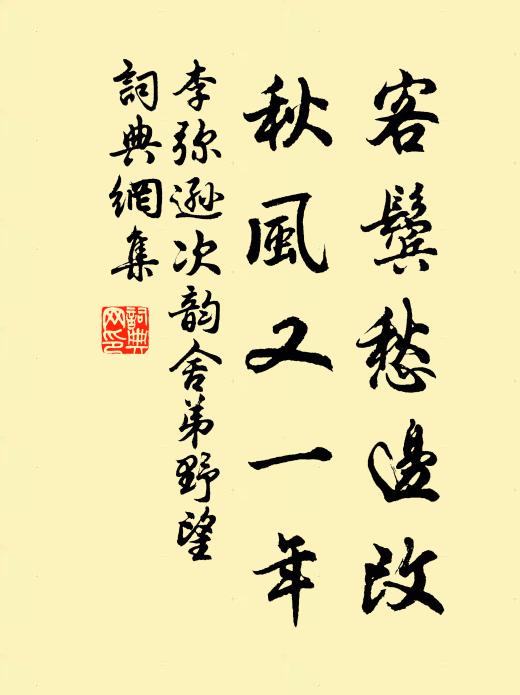 客鬢愁邊改
秋風又一年
李弥遜次韵舍弟野望
詞典網集
詞典
网印